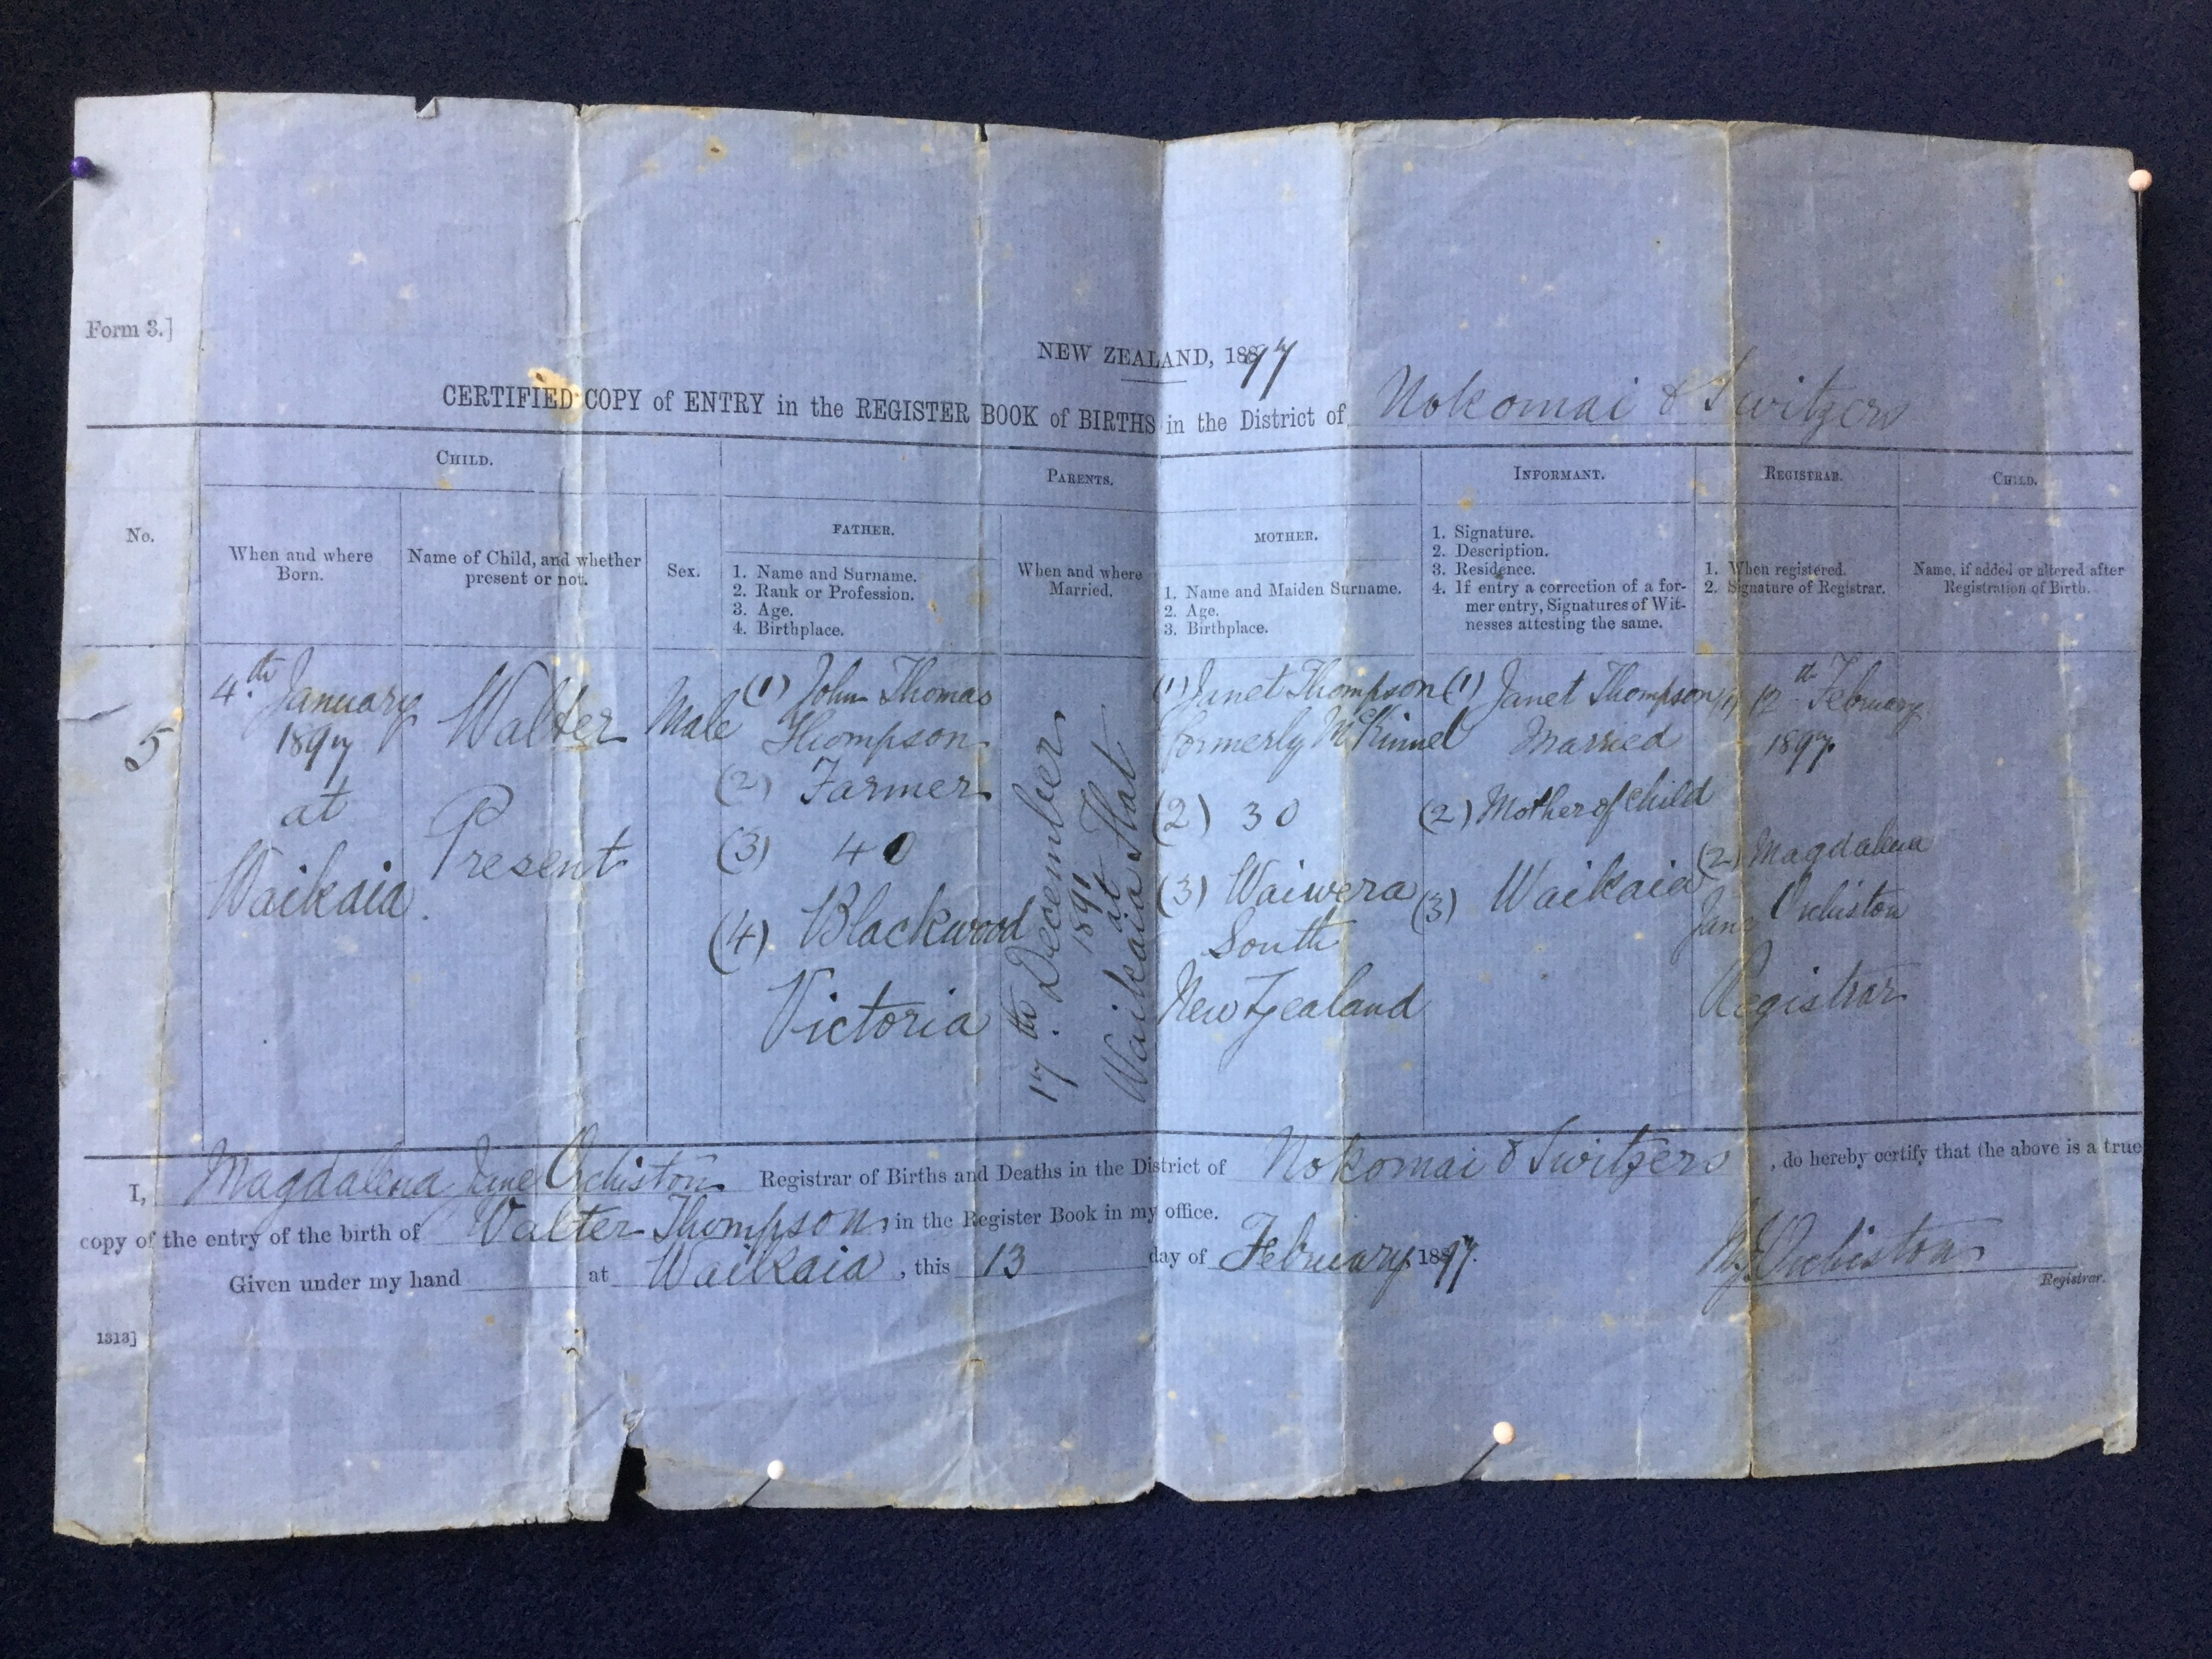 Form 3.]
NEW ZEALAND, 1897
CERTIFIED COPY of ENTRY in the REGISTER BOOK of BIRTHS in the District of Nokomai & Switzers
CHILD.
PARENTS.
INFORMANT.
REGISTRAR.
CHILD.
No.
When and where
Born.
Name of Child, and whether
present or not.
Sex.
FATHER.
1. Name and Surname.
2. Rank or Profession.
3. Age.
4. Birthplace.
When and where
Married.
MOTHER.
1. Name and Maiden Surname.
2. Age.
3. Birthplace.
1. Signature.
2. Description.
3. Residence.
4. If entry a correction of a for-
mer entry, Signatures of Wit-
nesses attesting the same.
1. When registered.
2. Signature of Registrar.
Name, if added or altered after
Registration of Birth.
5
4th January
1897
at
Waikaia.
Walter
Present
Male
(1) John Thomas
Thompson
(2) Farmer
(3) 40
(4) Blackwood
Victoria
17th December
1891
at
Waikaia Flat
(1) Janet Thompson
formerly McKinnel
(2) 30
(3) Waiwera
South
New Zealand
(1) Janet Thompson
Married
(2) Mother of Child
(3) Waikaia
(1) 12th February
1897.
(2) Magdalena
Jane Orchiston
Registrar
I, Magdalena Jane Orchiston Registrar of Births and Deaths in the District of Nokomai & Switzers, do hereby certify that the above is a true
copy of the entry of the birth of Walter Thompson, in the Register Book in my office.
Given under my hand at Waikaia, this 13 day of February 1897.
MJ Orchiston
Registrar.
1313]